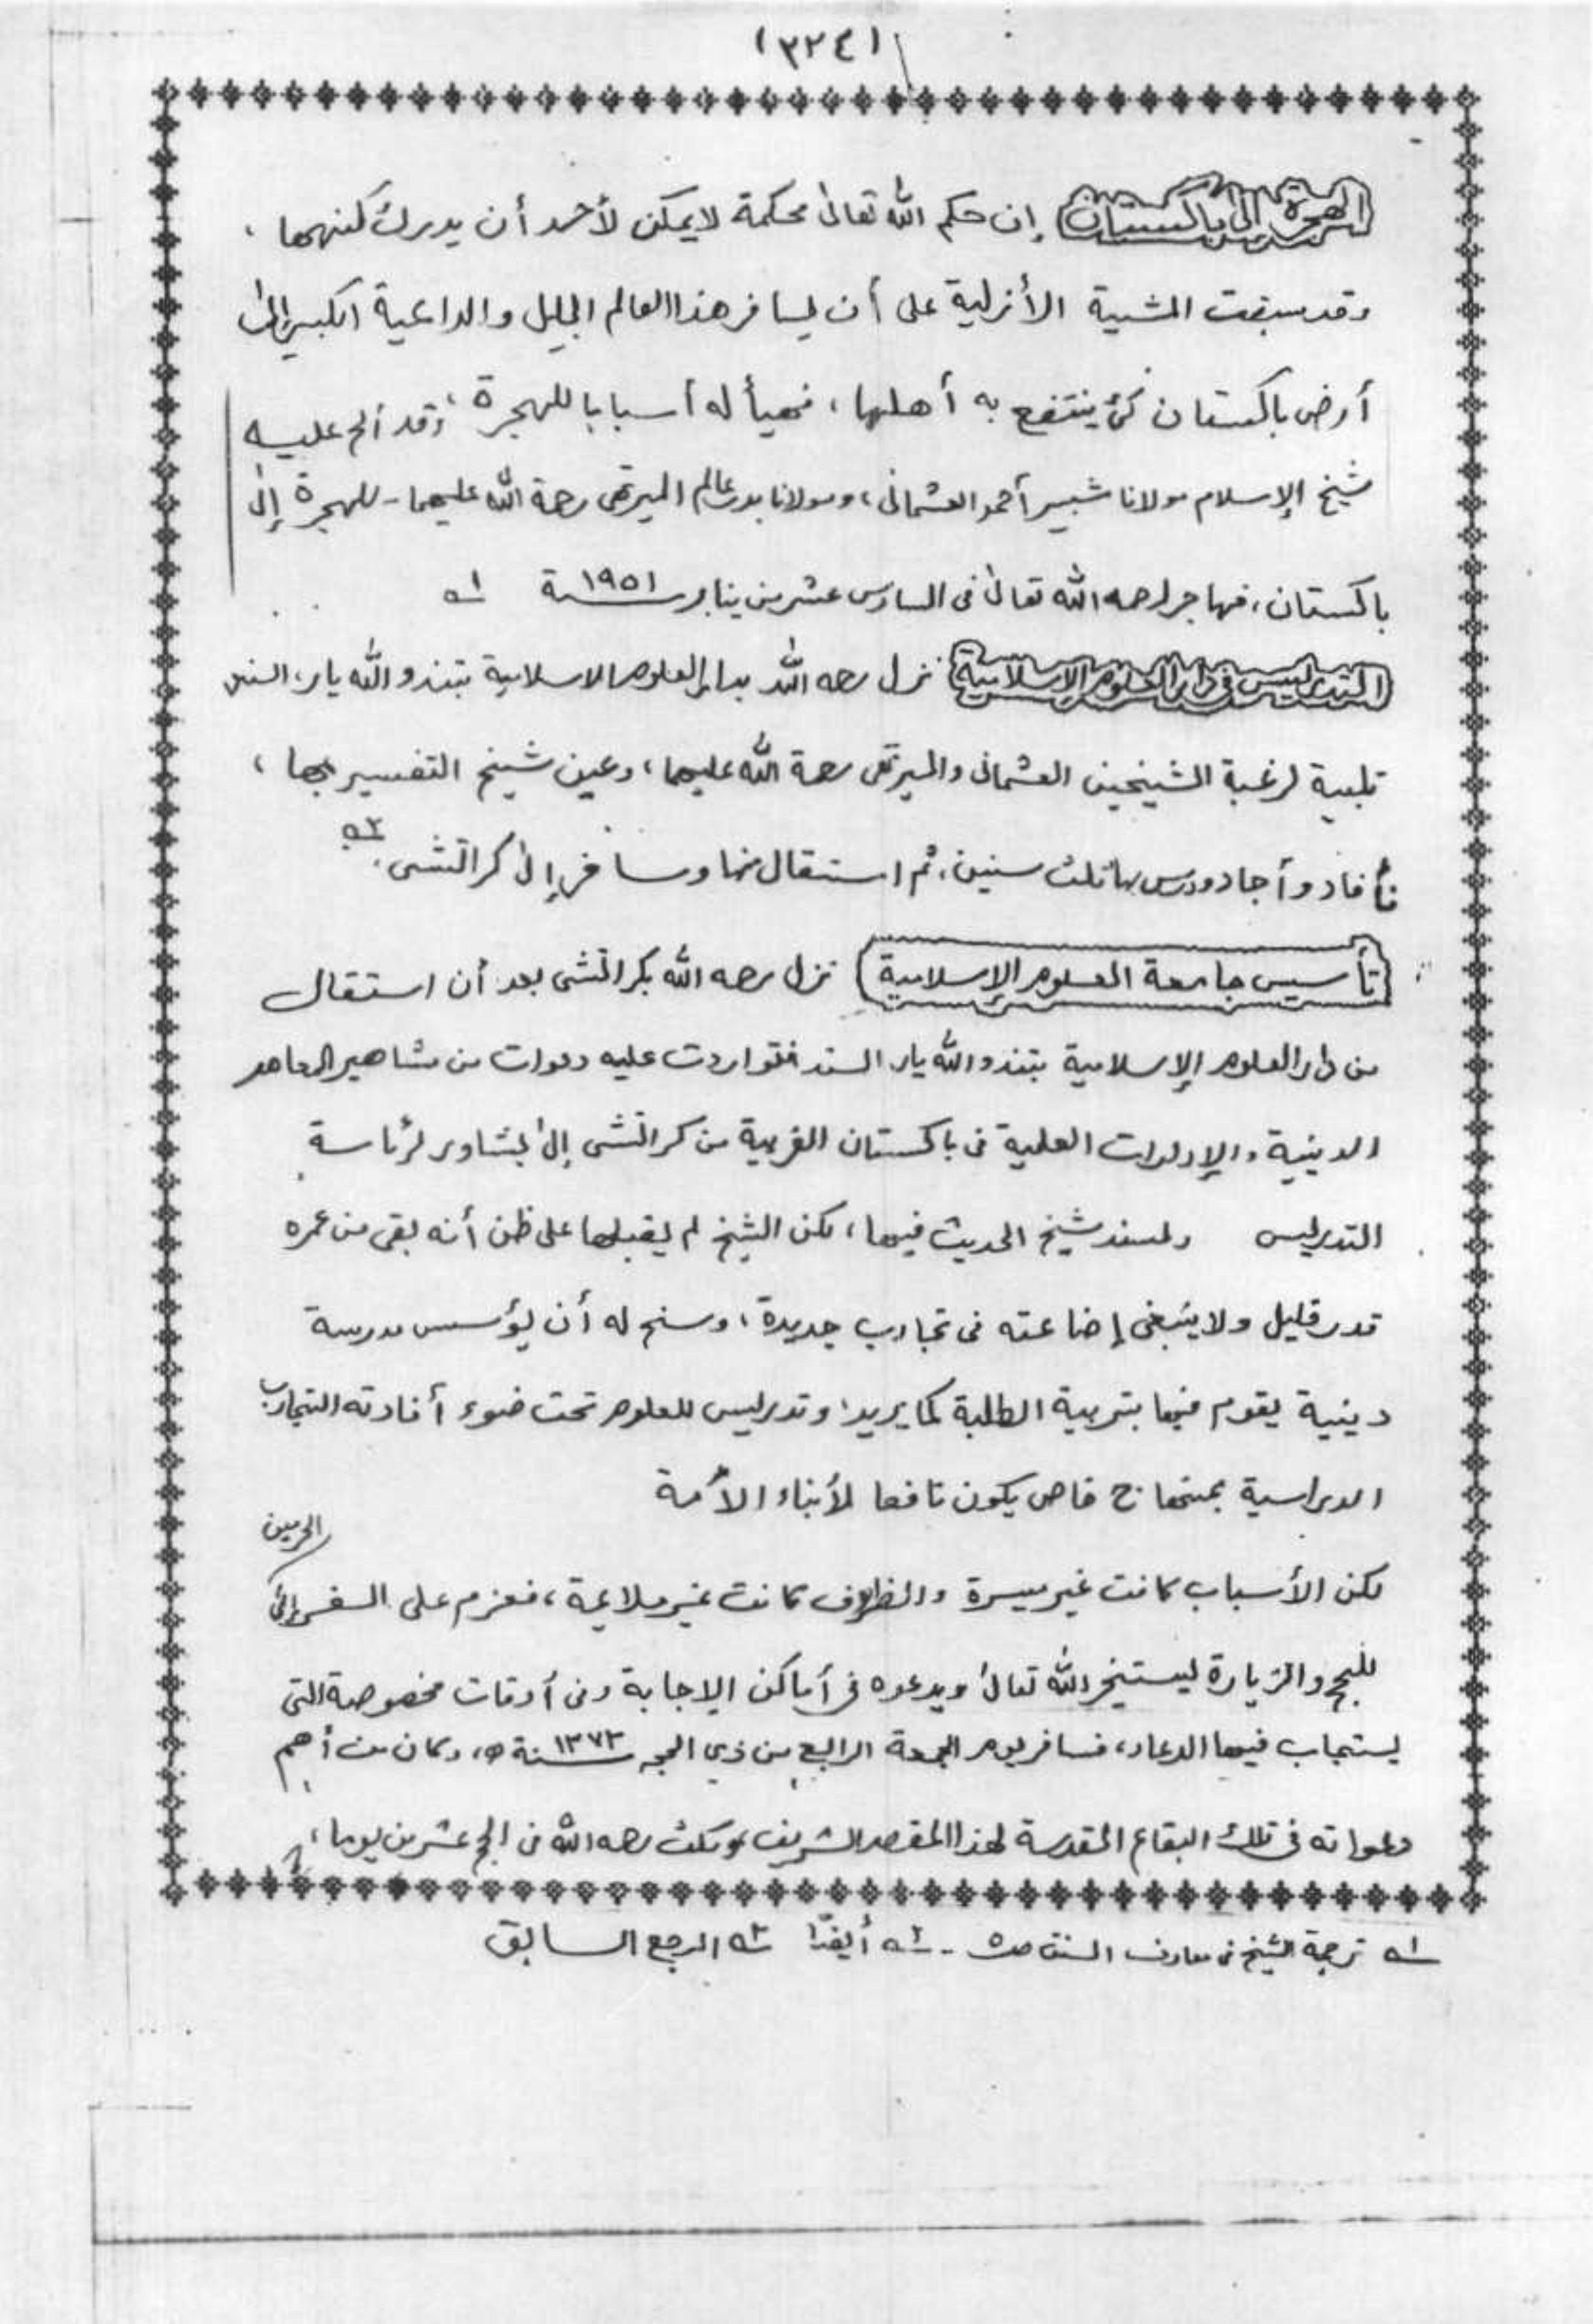 (٣٢٤)
الهجرة إلى باكستان إن حكم الله تعالىٰ محكمة لا يمكن لأحد أن يدرك كنهها ،
وقد سبقت المشية الأزلية على أن يسافر هذا العالم الجليل والداعية الكبير إلىٰ
أرض باكستان كي ينتفع به أهلها ، فهيأ له أسبابا للهجرة ، وقد ألح عليه
شيخ الإسلام مولانا شبير أحمد العثماني ، ومولانا بدر عالم الميرتهى رحمة الله عليهما - للهجرة إلىٰ
باكستان ، فهاجر رحمه الله تعالىٰ فى السادس عشر من يناير سنة ١٩٥١ ١ـه
التدريس في دار العلوم الإسلامية نزل رحمه الله بدار العلوم الاسلامية بتندو الله يار ، السند
تلبية لرغبة الشيخين العثمانى والميرتهى رحمة الله عليهما ، وعين شيخ التفسير بها ،
فأفاد وأجاد ودرس بها ثلث سنين ، ثم استقال منها وسافر إلىٰ كراتشى . ٢ـه
تأسيس جامعة العلوم الإسلامية نزل رحمه الله بكراتشى بعد أن استقال
من دار العلوم الإسلامية بتندو الله يار السند فتواردت عليه دعوات من مشاهير المعاهد
الدينية والإدارات العلمية فى باكستان الغربية من كراتشى إلىٰ بشاور لرئاسة
التدريس ولمسند شيخ الحديث فيها ، لكن الشيخ لم يقبلها على ظن أنه بقى من عمره
قدر قليل ولا ينبغى إضاعته فى تجارب جديدة ، وسنح له أن يؤسس مدرسة
دينية يقوم فيها بتربية الطلبة كما يريد ، وتدريس للعلوم تحت ضوء أفادته التجارب
الدراسية بمنهاج خاص يكون نافعا لأبناء الأمة
لكن الأسباب كانت غير ميسرة والظروف كانت غير ملائمة ، فعزم على السفر إلىٰ الحرمين
للحج والزيارة ليستخير الله تعالىٰ ويدعوه فى أماكن الإجابة وفى أوقات مخصوصة التى
يستجاب فيها الدعاء ، فسافر يوم الجمعة الرابع من ذي الحجه سنة ١٣٧٣ ه ، وكان من أهم
دعواته فى تلك البقاع المقدسة لهذا المقصد الشريف ومكث رحمه الله فى الحج عشرين يوما ،
١ـه ترجمة الشيخ فى معارف السنن ص٥ - ٢ـه أيضًا ٣ـه المرجع السابق